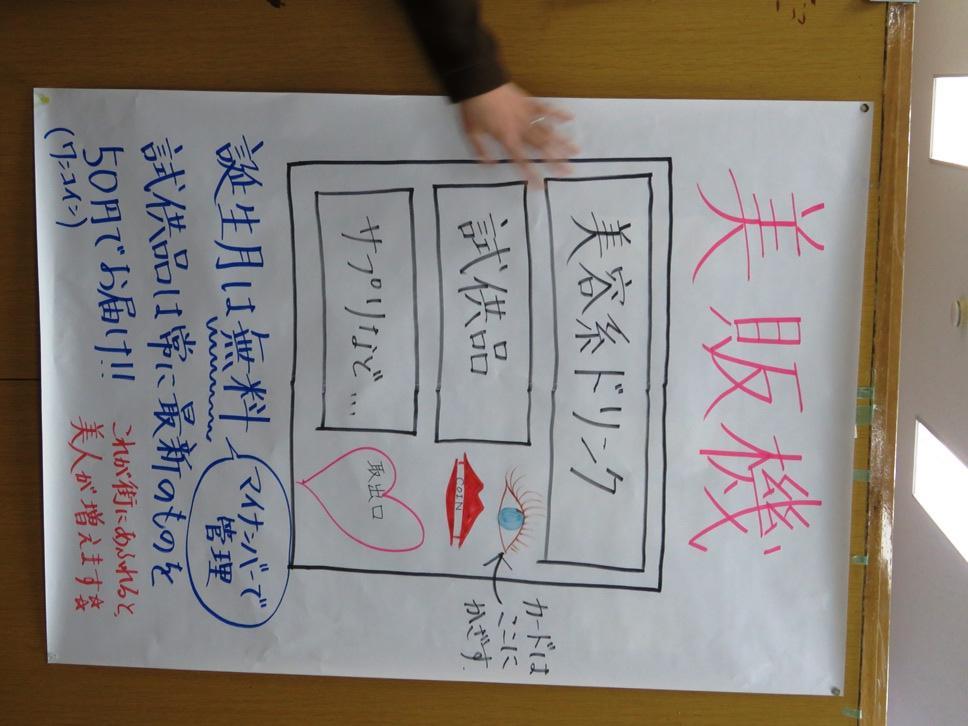 美販機
美容系ドリンク
試供品
サプリなど…
COIN
取出口
カードは
ここに
かざす.
誕生月は無料
マイナンバーで
管理
試供品は常に最新のものを
50円でお届け!!
(ワンコイン)
これが街にあふれると、
美人が増えます☆